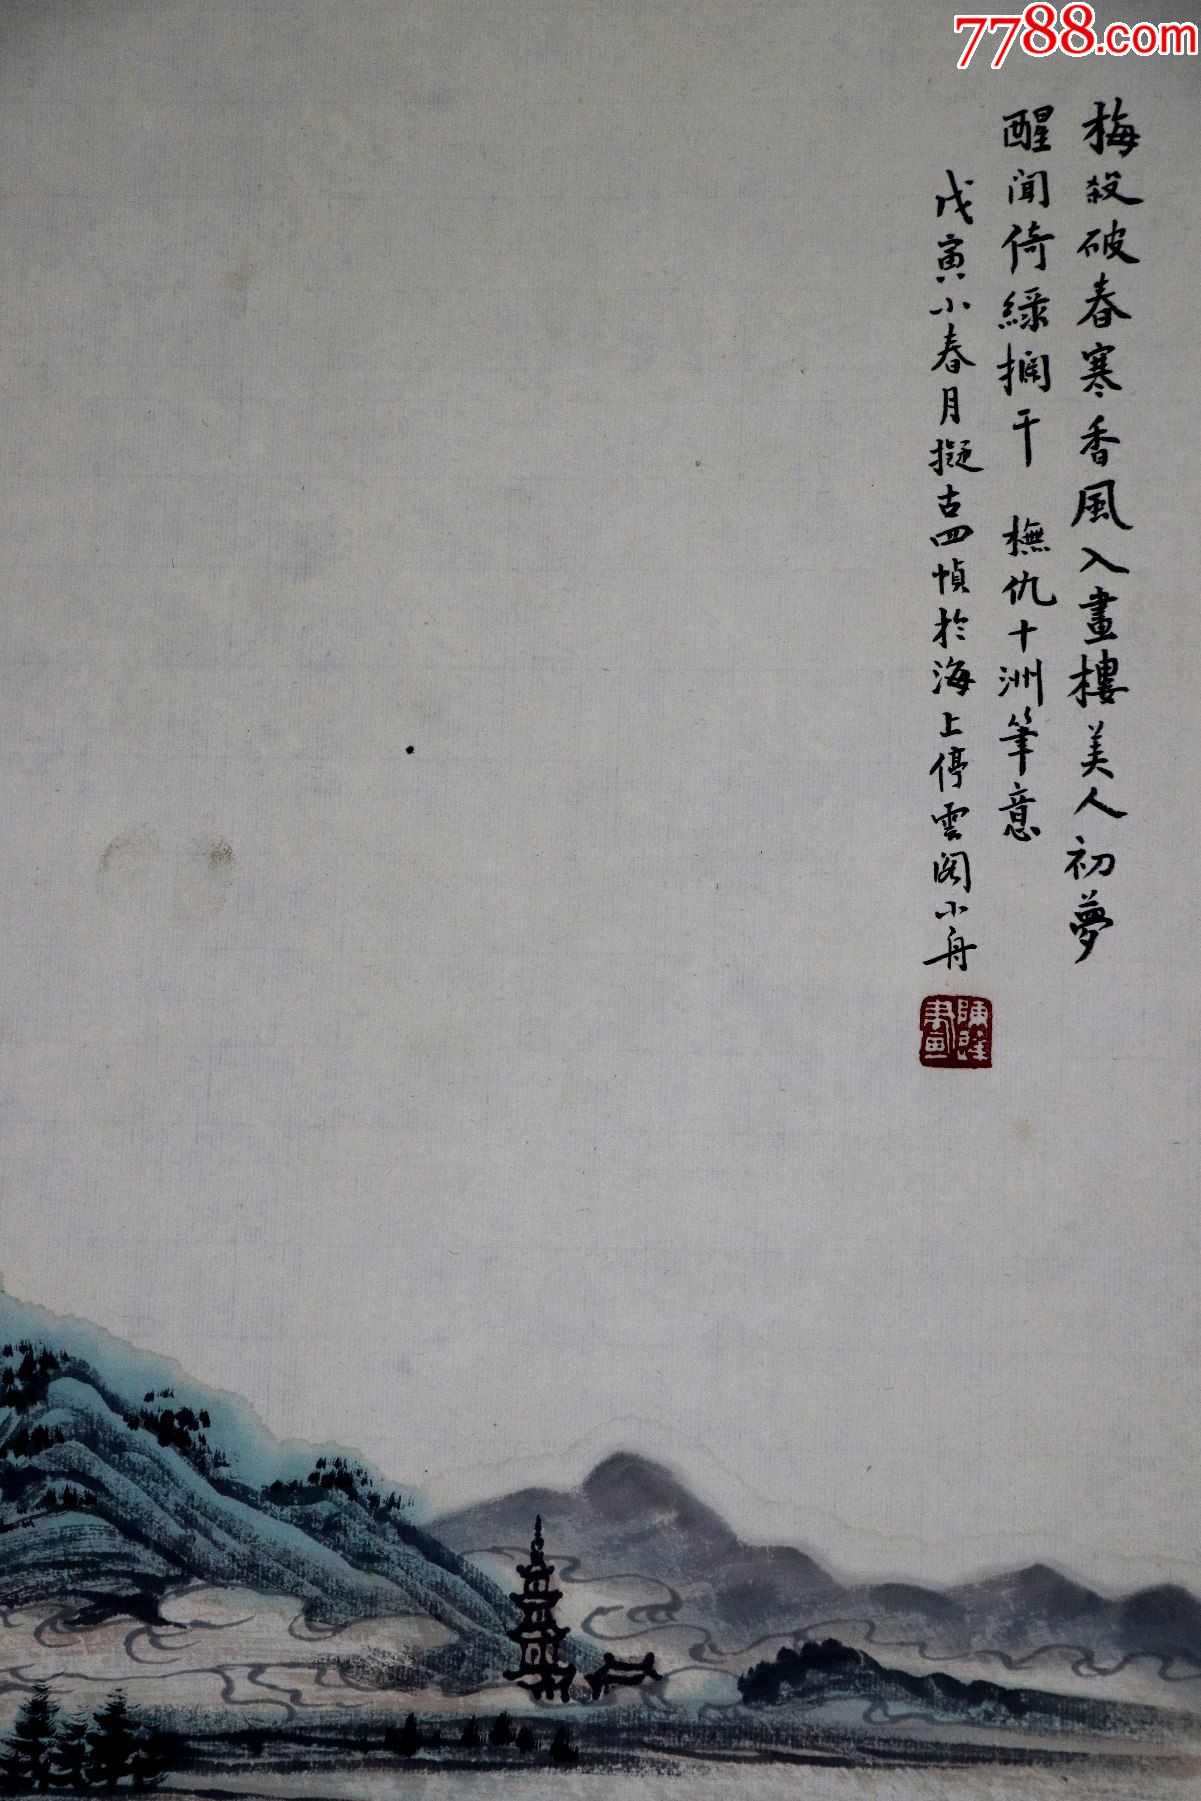 7788.com
梅殺破春寒香風入畫樓美人初夢
醒聞倚綠攔干 橅仇十洲筆意
戊寅小春月擬古四幀於海上停雲閣小舟